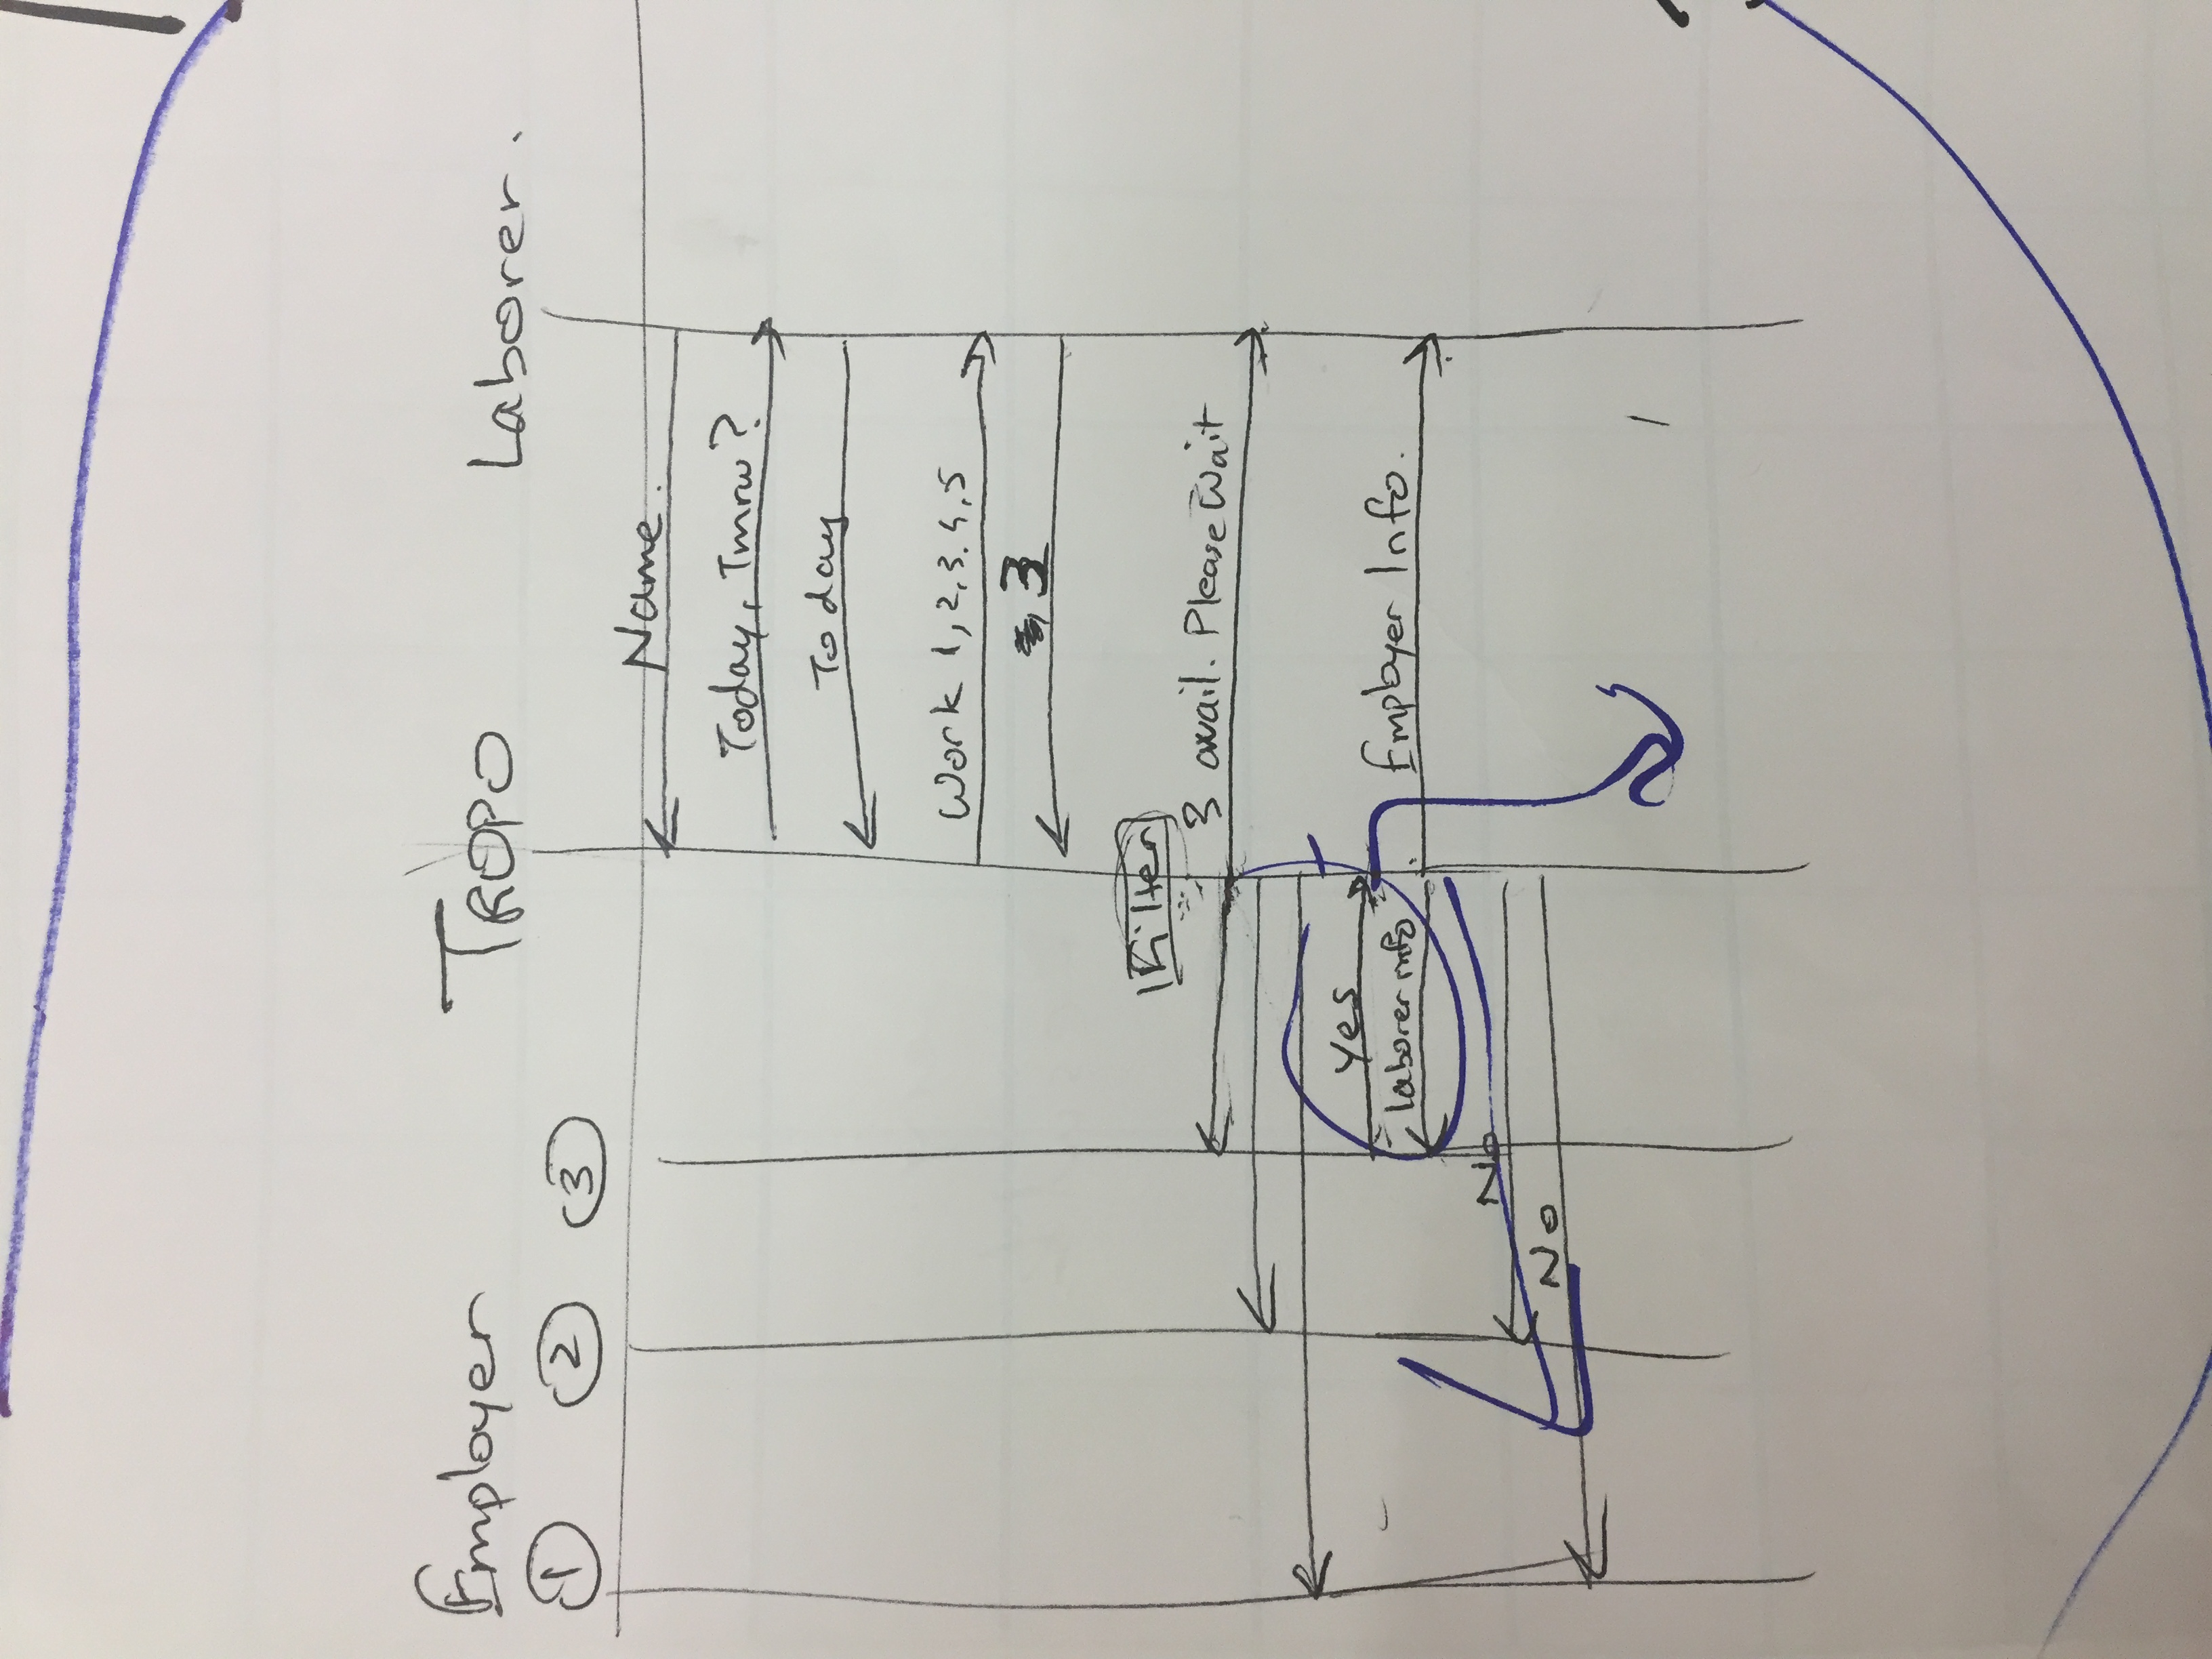 Employer TROPO Laborer.
1 2 3
Name.
Today, Tmrw?
Today
Work 1, 2, 3, 4, 5
3
Filter
3 avail. Please Wait
Yes
laborer info Employer Info.
No
No